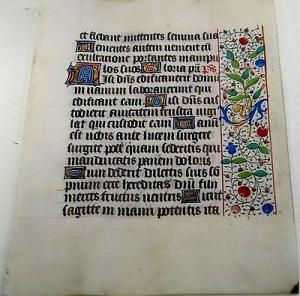 et flebant mittentes semina sua
Uenientes autem uenient cū
exultatione portantes manipu
los suos Gloria p̄ri p̄s
Nisi dn̄s edificauerit domū
in uanum laborauerunt qui
edificant eam Nisi dn̄s cus
todierit ciuitatem frustra uigi
lat qui custodit eam Uanū
est uobis ante lucem surgere
surgite postquam sederitis qui
manducatis panem doloris
Cum dederit dilectis suis so
pnum ecce hereditas dn̄i filii
merces fructus uentris Sicut
sagitte in manu potentis ita